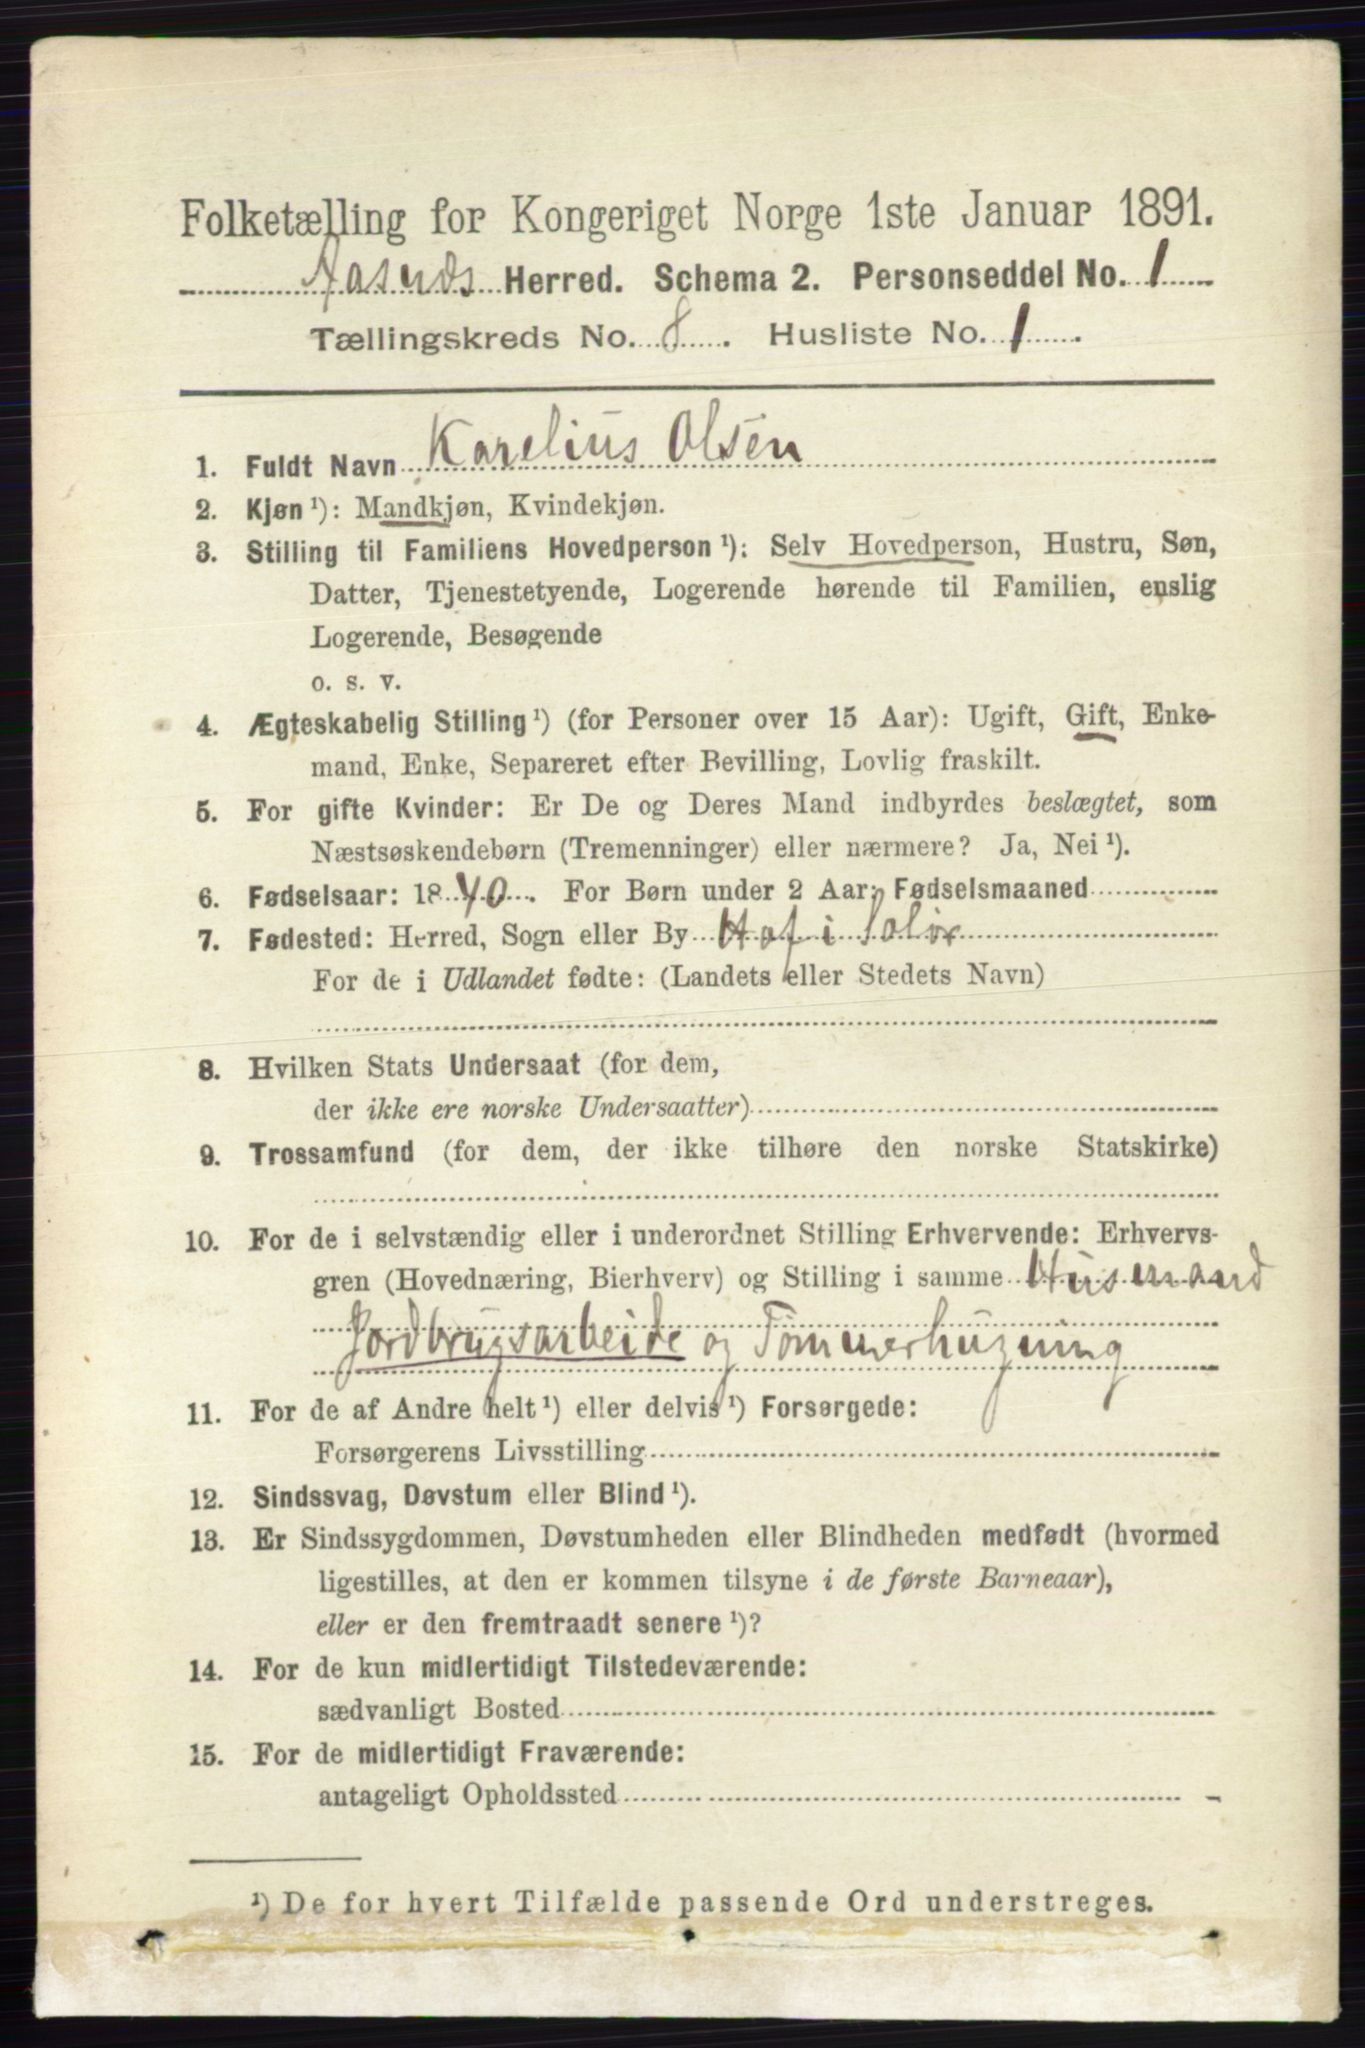 Folketælling for Kongeriget Norge 1ste Januar 1891.
Aasnæs Herred. Schema 2. Personseddel No. 1
Tællingskreds No. 8. Husliste No. 1.
1. Fuldt Navn Karelius Olsen
2. Kjøn ¹): Mandkjøn, Kvindekjøn.
3. Stilling til Familiens Hovedperson ¹): Selv Hovedperson, Hustru, Søn,
Datter, Tjenestetyende, Logerende hørende til Familien, enslig
Logerende, Besøgende
o. s. v.
4. Ægteskabelig Stilling ¹) (for Personer over 15 Aar): Ugift, Gift, Enke-
mand, Enke, Separeret efter Bevilling, Lovlig fraskilt.
5. For gifte Kvinder: Er De og Deres Mand indbyrdes beslægtet, som
Næstsøskendebørn (Tremenninger) eller nærmere? Ja, Nei ¹).
6. Fødselsaar: 1840. For Børn under 2 Aar: Fødselsmaaned
7. Fødested: Herred, Sogn eller By Hof i Solør
For de i Udlandet fødte: (Landets eller Stedets Navn)
8. Hvilken Stats Undersaat (for dem,
der ikke ere norske Undersaatter)
9. Trossamfund (for dem, der ikke tilhøre den norske Statskirke)
10. For de i selvstændig eller i underordnet Stilling Erhvervende: Erhvervs-
gren (Hovednæring, Bierhverv) og Stilling i samme Husmand
Jordbrugsarbeide og Tømmerhugning
11. For de af Andre helt ¹) eller delvis ¹) Forsørgede:
Forsørgerens Livsstilling
12. Sindssvag, Døvstum eller Blind ¹).
13. Er Sindssygdommen, Døvstumheden eller Blindheden medfødt (hvormed
ligestilles, at den er kommen tilsyne i de første Barneaar),
eller er den fremtraadt senere ¹)?
14. For de kun midlertidigt Tilstedeværende:
sædvanligt Bosted
15. For de midlertidigt Fraværende:
antageligt Opholdssted
¹) De for hvert Tilfælde passende Ord understreges.